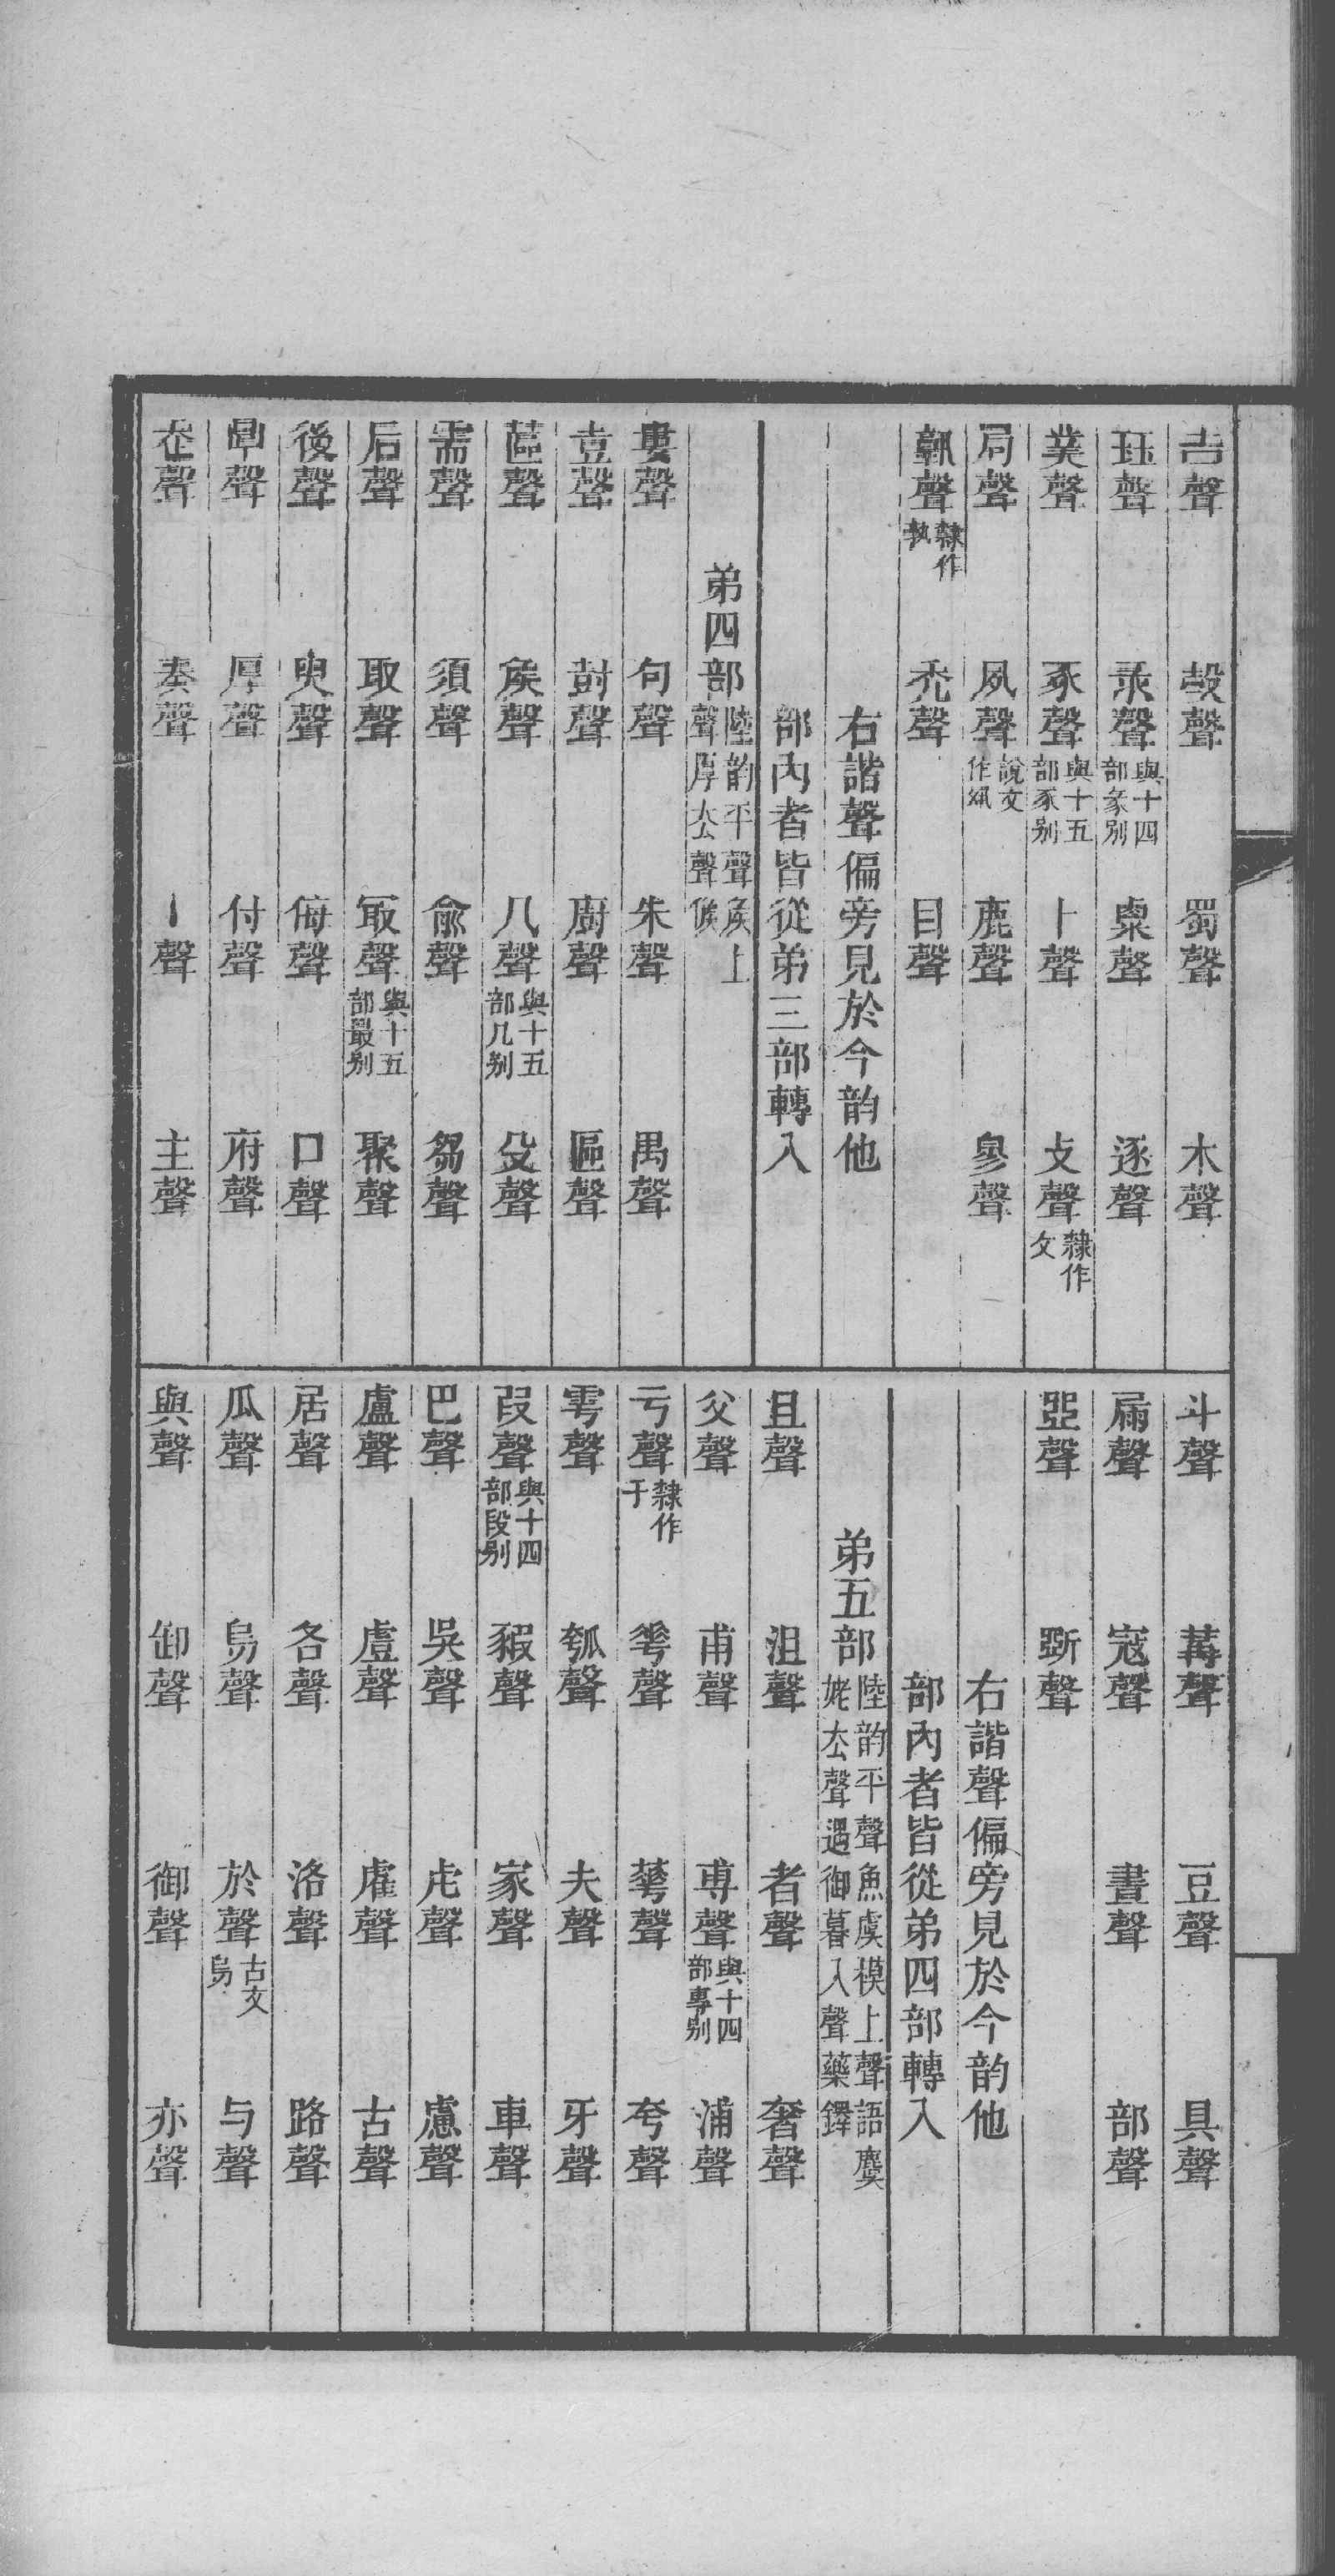 𠱠聲　㱿聲　蜀聲　木聲
珏聲　彔聲與十四部彖別　粟聲　逐聲
菐聲　豕聲與十五部豕別　卜聲　攴聲隸作攵
局聲　夙聲說文作𡖊　鹿聲　㣎聲
𩏑聲隸作孰　禿聲　目聲
右諧聲偏旁見於今韵他
部內者皆從弟三部轉入
弟四部陸韵平聲矦上聲厚厺聲候
婁聲　句聲　朱聲　禺聲
壴聲　尌聲　廚聲　區聲
蓲聲　矦聲　𠘧聲與十五部几別　殳聲
需聲　須聲　兪聲　芻聲
后聲　取聲　冣聲與十五部最別　聚聲
後聲　臾聲　侮聲　口聲
㫗聲　厚聲　付聲　府聲
𡊄聲　奏聲　丶聲　主聲
斗聲　冓聲　豆聲　具聲
扇聲　寇聲　晝聲　部聲
㔷聲　斲聲
右諧聲偏旁見於今韵他
部內者皆從弟四部轉入
弟五部陸韵平聲魚虞模上聲語麌姥厺聲遇御暮入聲藥鐸
且聲　沮聲　者聲　奢聲
父聲　甫聲　尃聲與十四部專別　浦聲
亏聲隸作于　𠌶聲　華聲　夸聲
雩聲　瓠聲　夫聲　牙聲
叚聲與十四部段別　豭聲　家聲　車聲
巴聲　吳聲　虍聲　慮聲
盧聲　虘聲　䖒聲　古聲
居聲　各聲　洛聲　路聲
瓜聲　烏聲　於聲古文烏　与聲
與聲　卸聲　御聲　亦聲